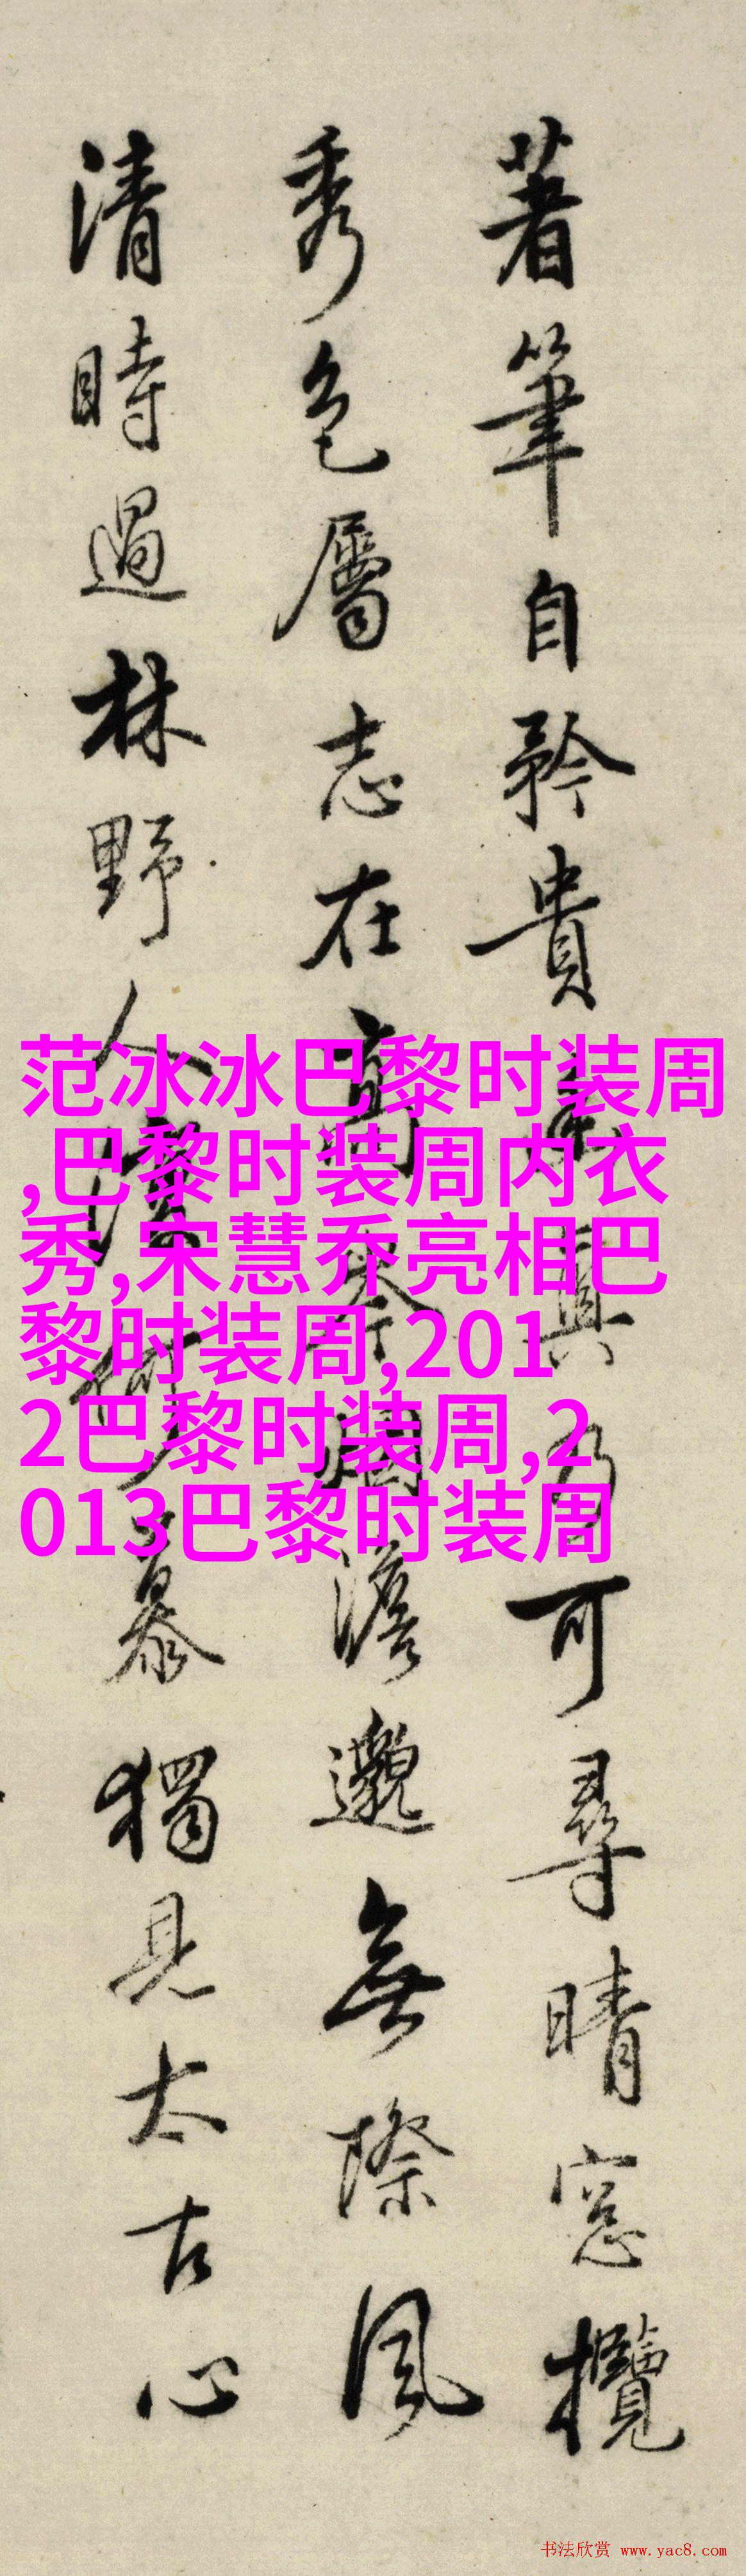 著筆自矜貴真乃可尋晴窓攬
秀色屬志在高岑澹邈無際風
清時過林野人獨見太古心
范冰冰巴黎时装周
,巴黎时装周内衣
秀,宋慧乔亮相巴
黎时装周,201
2巴黎时装周,2
013巴黎时装周
书法欣赏 www.yac8.com